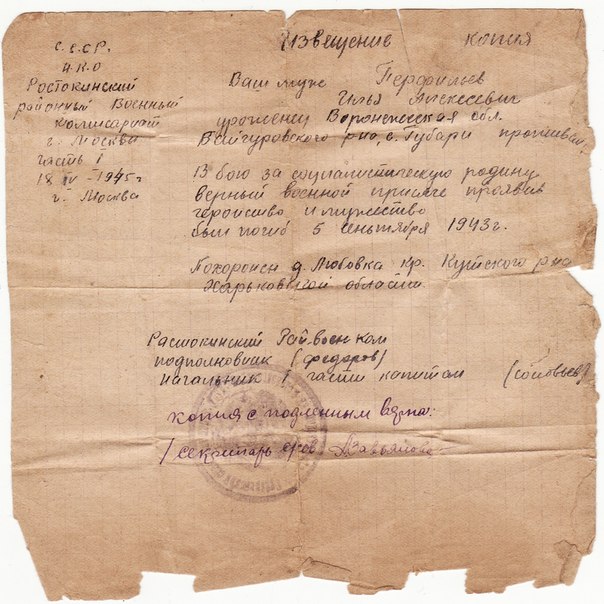 С.С.С.Р.
Н.К.О
Ростокинский
районный Военный
комисариат
г. Москва
Часть I
18 IV - 1945 г
г. Москва
Извещение копия
Ваш муж Перфильев
Илья Алексеевич
уроженец Воронежская обл.
Байчуровского р-на, с. Губари проживал
В бою за социалистическую родину
верный военной присяге проявив
геройство и мужество
был погиб 5 сентября 1943 г.
Похоронен д. Любовка Кр. Кутского р-на
Харьковской области
Растокинский Райвоенком
подполковник (Федоров)
начальник I части капитан (Соловьев)
копия с подленным верна:
/секретарь